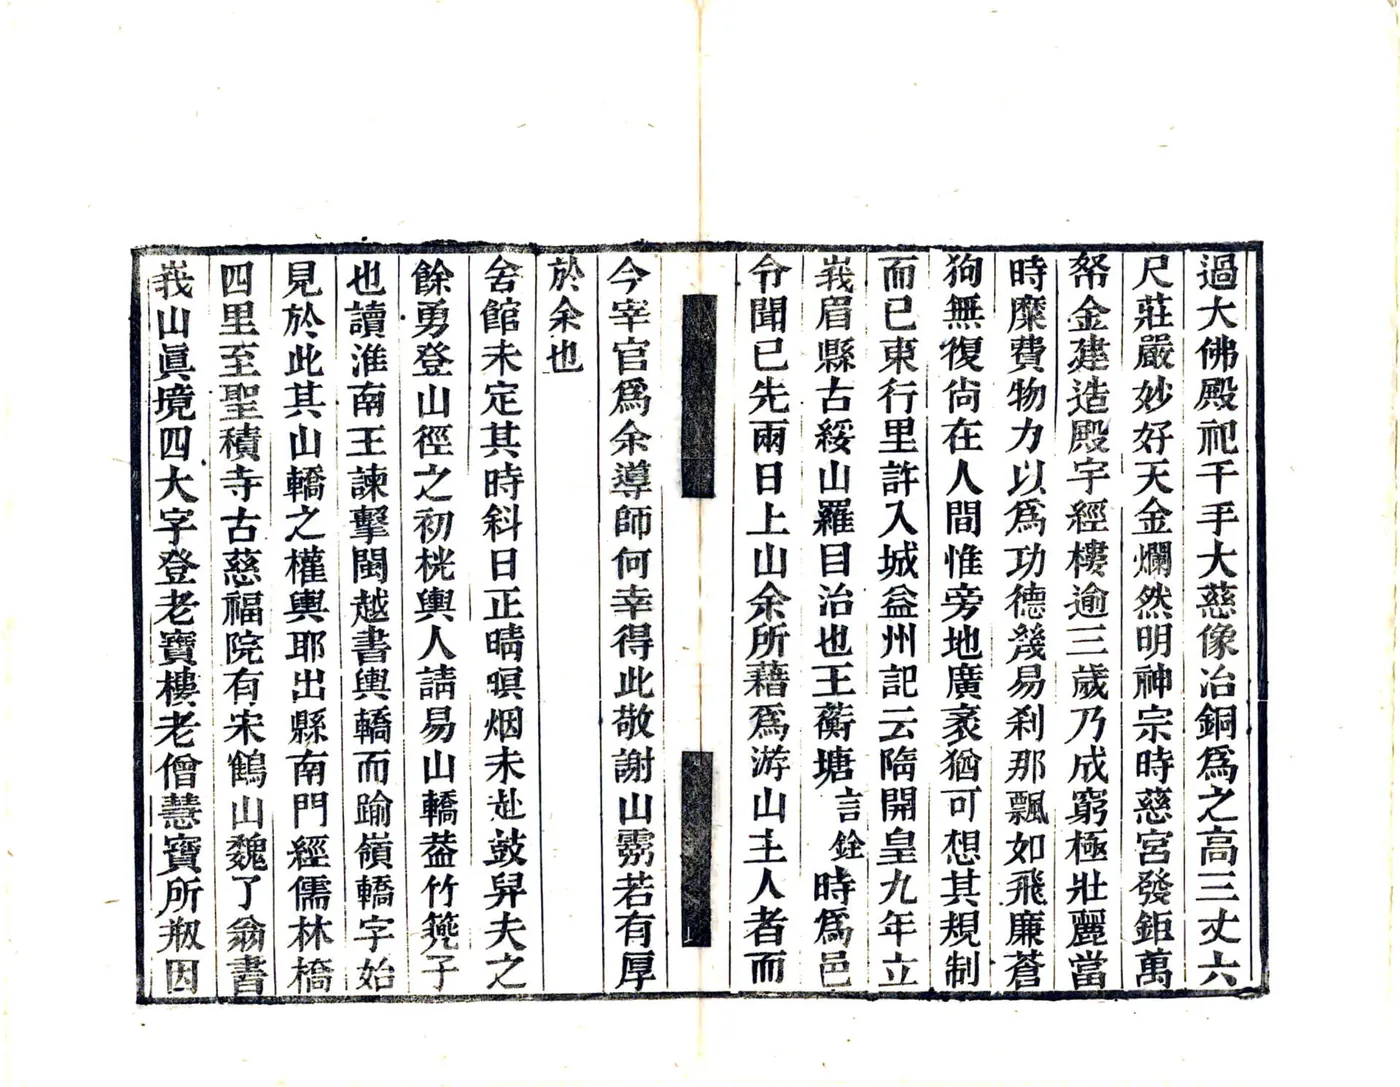 過大佛殿祀千手大慈像冶銅爲之高三丈六
尺莊嚴妙好天金爛然明神宗時慈宮發鉅萬
帑金建造殿宇經樓逾三歲乃成窮極壯麗當
時糜費物力以爲功德幾易刹那飄如飛廉蒼
狗無復尙在人間惟旁地廣袤猶可想其規制
而已東行里許入城益州記云隋開皇九年立
峩眉縣古綏山羅目治也王蘅塘言銓時爲邑
令聞已先兩日上山余所藉爲游山主人者而
今宰官爲余導師何幸得此敬謝山靈若有厚
於余也
舍館未定其時斜日正晴暝烟未赴鼓舁夫之
餘勇登山徑之初桄輿人請易山轎葢竹篼子
也讀淮南王諫擊閩越書輿轎而踰嶺轎字始
見於此其山轎之權輿耶出縣南門經儒林橋
四里至聖積寺古慈福院有宋鶴山魏了翁書
峩山眞境四大字登老寶樓老僧慧寶所瓶因